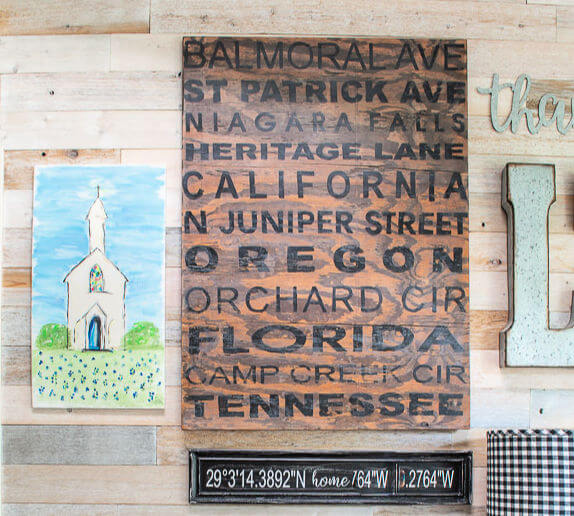 BALMORAL AVE
ST PATRICK AVE
NIAGARA FALLS
HERITAGE LANE
CALIFORNIA
N JUNIPER STREET
OREGON
ORCHARD CIR
FLORIDA
CAMP CREEK CIR
TENNESSEE
tha
L
29°3'14.3892"N home 764"W 0.2764"W